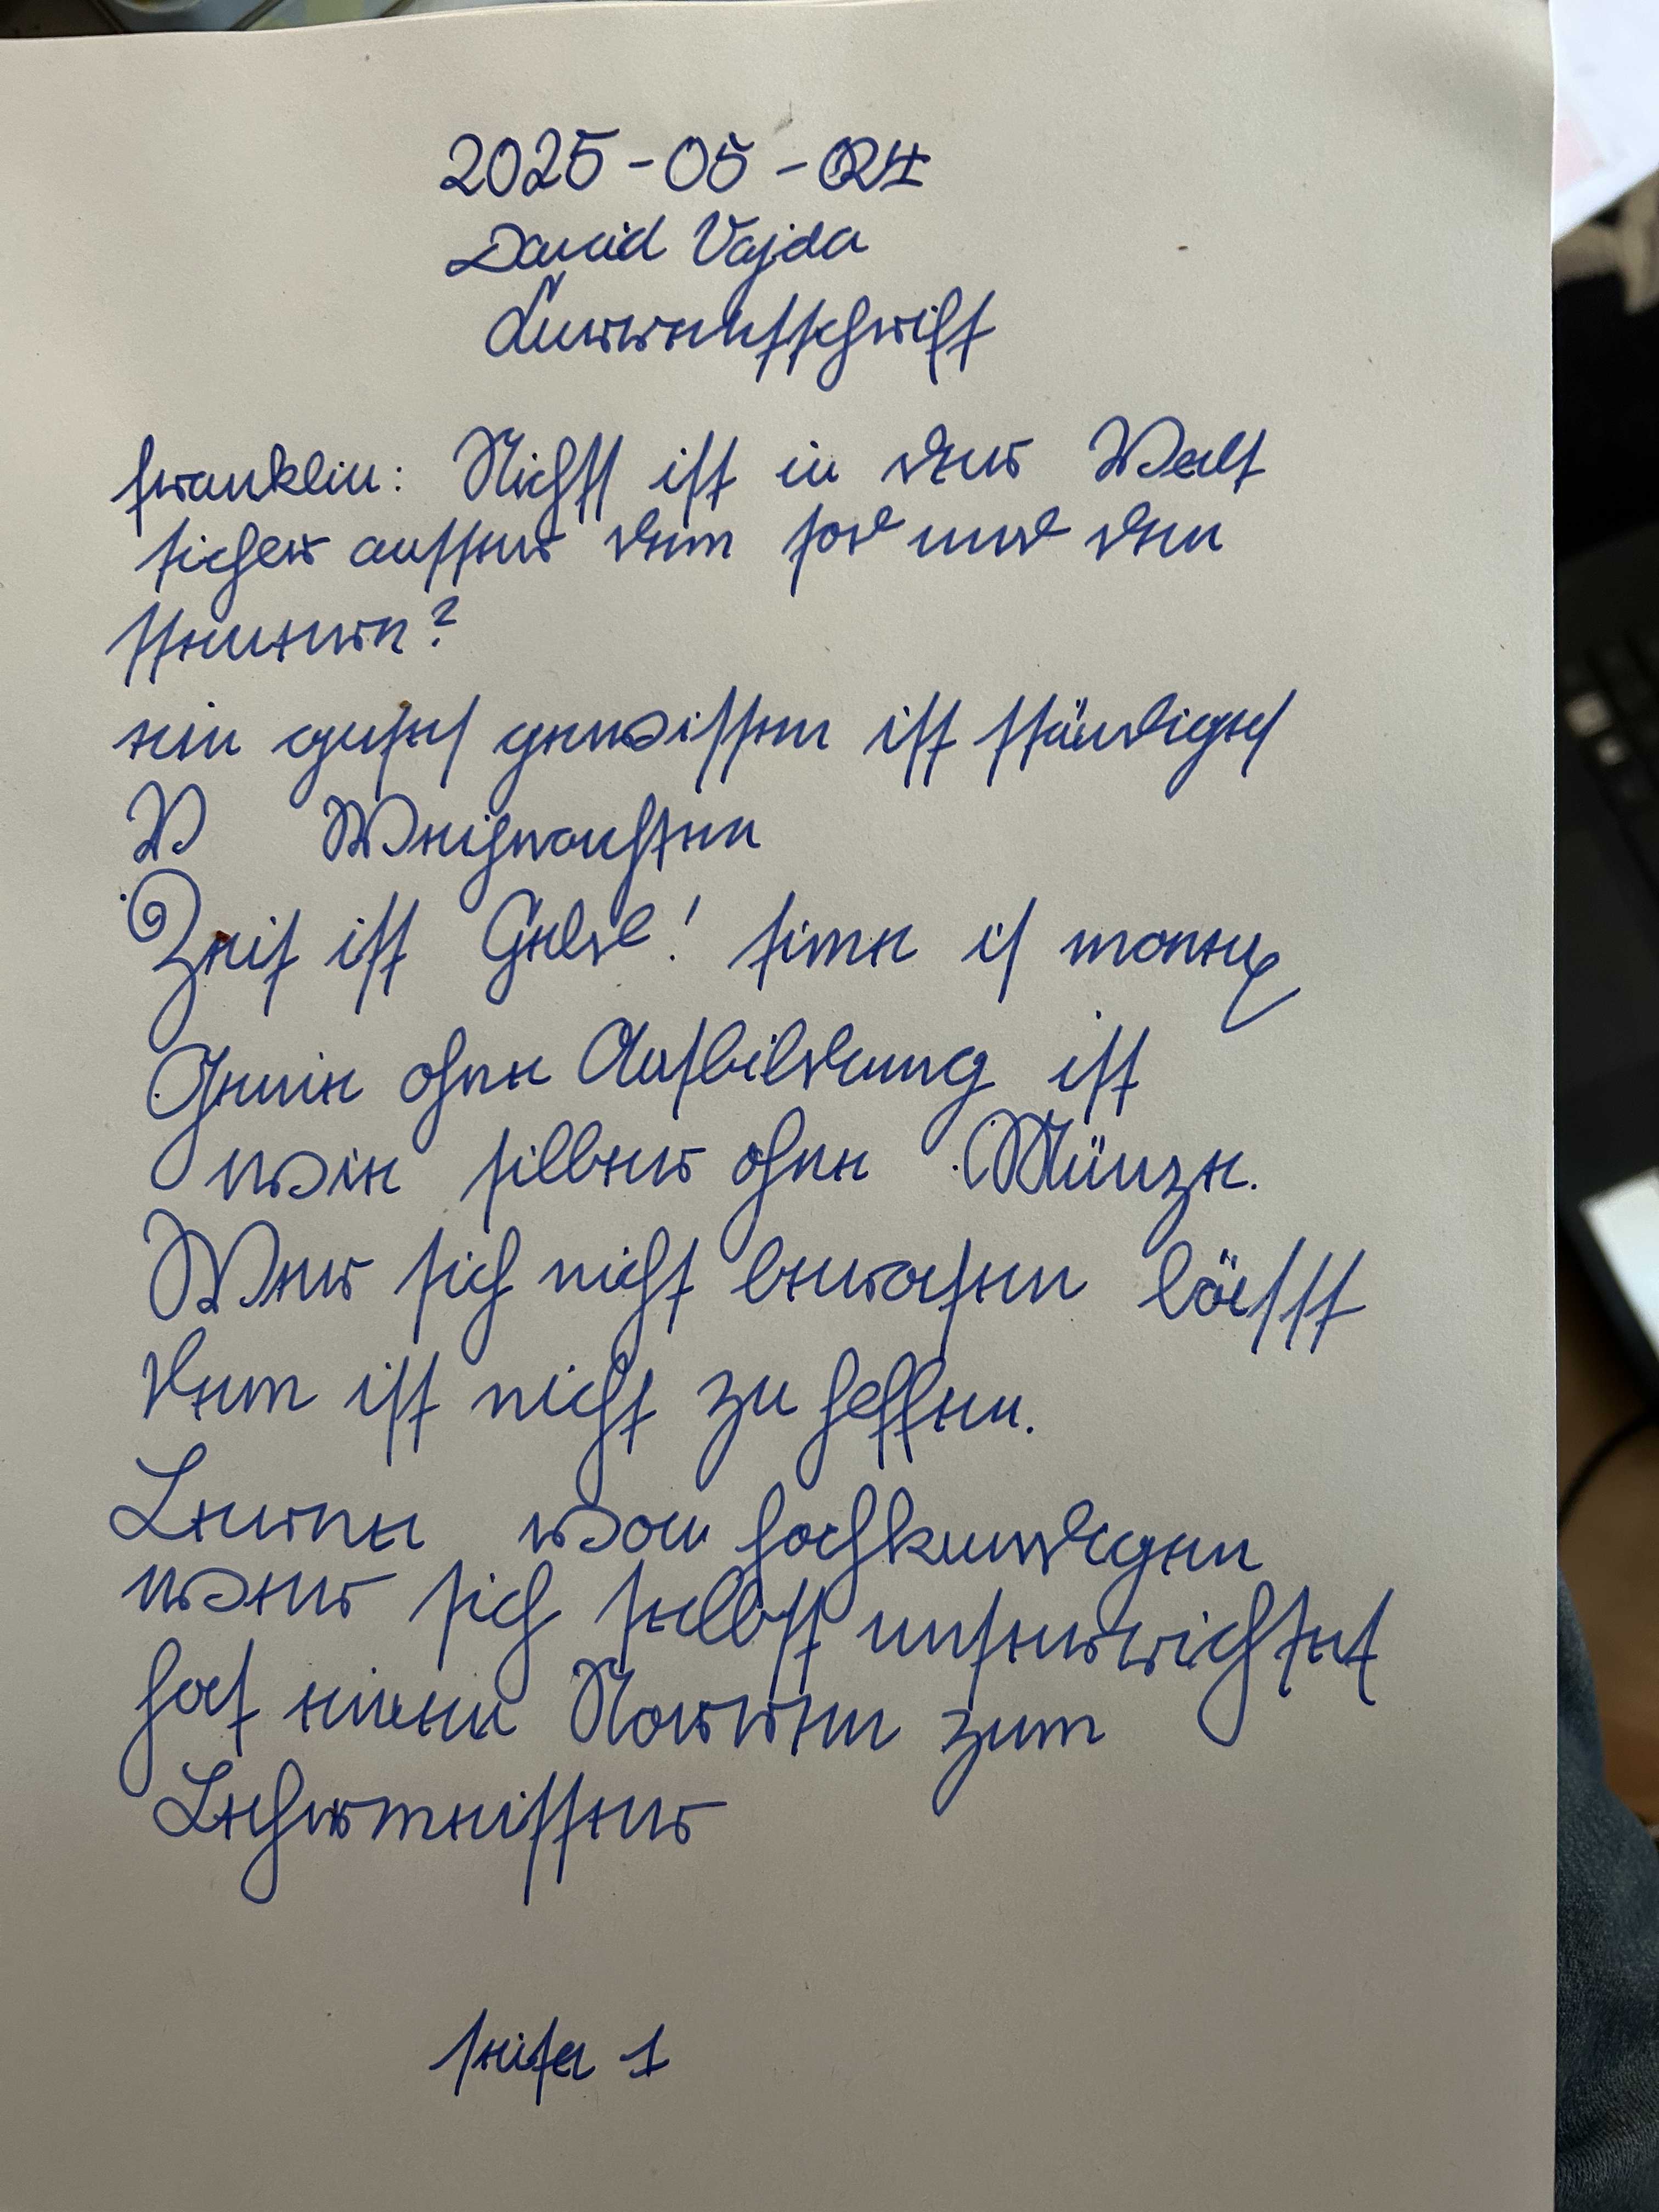 2025-05-024
David Vajda
Kurrentschrift
franklin: Nichts ist in der Welt
sicher ausser dem tod und den
steuern?
ein gutes gewissen ist ständiges
W Weihnachten
Zeit ist Geld! time is money
Genie ohne Ausbildung ist
wie silber ohne Münze.
Wer sich nicht beraten lässt
dem ist nicht zu helfen.
Lerne von fachkundigen
wer sich selbst unterrichtet
hat einen Narren zum
Lehrmeister
seite 1